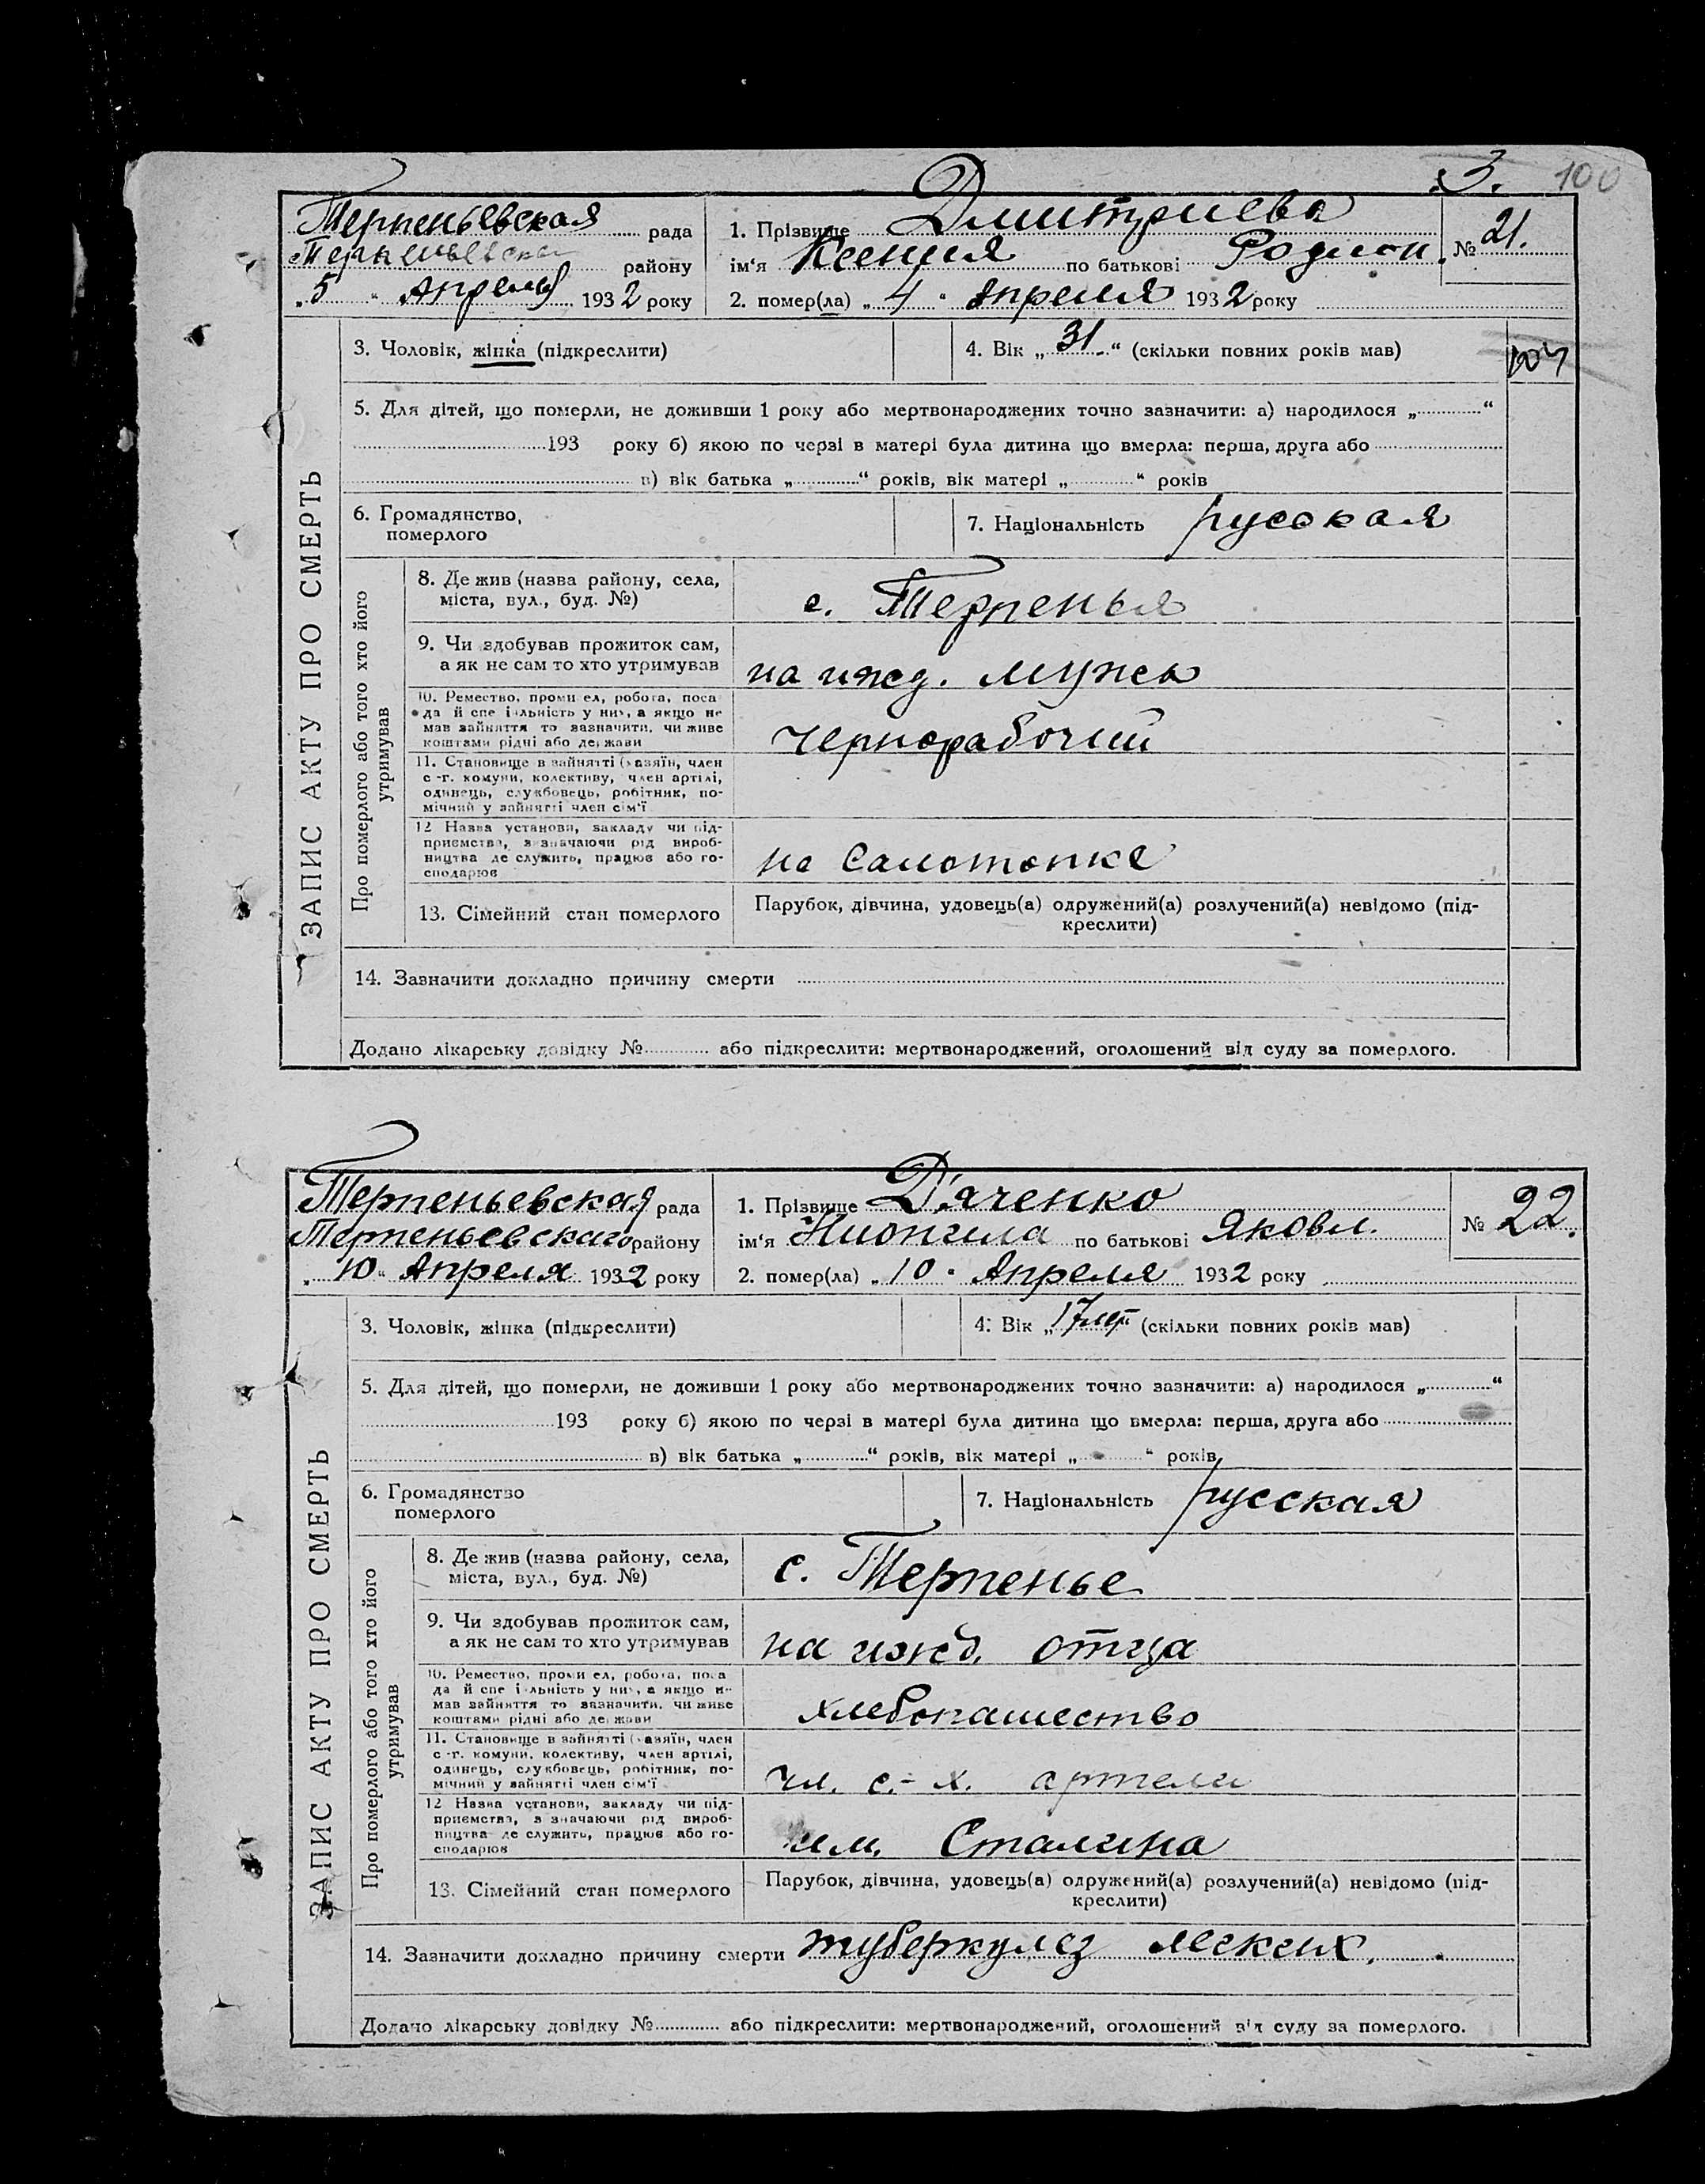 .3. 100
Терпеньевская рада
Терпеньевская району
„5“ Апреля 1932 року
1. Прізвище Дмитриева
ім‘я Ксения по батькові Родион.
№ 21.
2. помер(ла) „4“ Апреля 1932 року
ЗАПИС АКТУ ПРО СМЕРТЬ
3. Чоловік, жінка (підкреслити)
4. Вік „31“ (скільки повних років мав)
5. Для дітей, що померли, не доживши 1 року або мертвонароджених точно зазначити: а) народилося „............“
193 року б) якою по черзі в матері була дитина що вмерла: перша, друга або
в) вік батька „............“ років, вік матері „............“ років
6. Громадянство,
померлого
7. Національність русская
Про померлого або того хто його
утримував
8. Де жив (назва району, села,
міста, вул., буд. №)
с. Терпенья
9. Чи здобував прожиток сам,
а як не сам то хто утримував
на ижд. мужа
10. Ремество, промисел, робота, поса-
да й спеціальність у них, а якщо не
мав зайняття то зазначити, чи живе
коштами рідні або держави
чернорабочий
11. Становище в зайнятті (хазяїн, член
с.-г. комуни, колективу, член артілі,
одинець, службовець, робітник, по-
мічний у зайнятті член сім‘ї
12 Назва установи, закладу чи під-
приємства, зазначаючи рід вироб-
ництва де служить, працює або го-
сподарює
на Салотопке
13. Сімейний стан померлого
Парубок, дівчина, удовець(а) одружений(а) розлучений(а) невідомо (під-
креслити)
14. Зазначити докладно причину смерти
Додано лікарську довідку №............ або підкреслити: мертвонароджений, оголошений від суду за померлого.
Терпеньевская рада
Терпеньевскаго району
„10“ Апреля 1932 року
1. Прізвище Д'яченко
ім‘я по батькові Яковл.
№ 22.
2. помер(ла) „10“ Апреля 1932 року
ЗАПИС АКТУ ПРО СМЕРТЬ
3. Чоловік, жінка (підкреслити)
4. Вік „17 лет (скільки повних років мав)
5. Для дітей, що померли, не доживши 1 року або мертвонароджених точно зазначити: а) народилося „............“
193 року б) якою по черзі в матері була дитина що вмерла: перша, друга або
в) вік батька „............“ років, вік матері „............“ років
6. Громадянство
померлого
7. Національність русская
Про померлого або того хто його
утримував
8. Де жив (назва району, села,
міста, вул., буд. №)
с. Терпенье
9. Чи здобував прожиток сам,
а як не сам то хто утримував
на ижд. отца
10. Ремество, промисел, робота, поса-
да й спеціальність у них, а якщо не
мав зайняття то зазначити, чи живе
коштами рідні або держави
хлебопашество
11. Становище в зайнятті (хазяїн, член
с.-г. комуни, колективу, член артілі,
одинець, службовець, робітник, по-
мічний у зайнятті член сім‘ї
чл. с.-х. артели
12 Назва установи, закладу чи під-
приємства, зазначаючи рід вироб-
ництва де служить, працює або го-
сподарює
им. Сталина
13. Сімейний стан померлого
Парубок, дівчина, удовець(а) одружений(а) розлучений(а) невідомо (під-
креслити)
14. Зазначити докладно причину смерти туберкулез легких.
Додано лікарську довідку №............ або підкреслити: мертвонароджений, оголошений від суду за померлого.